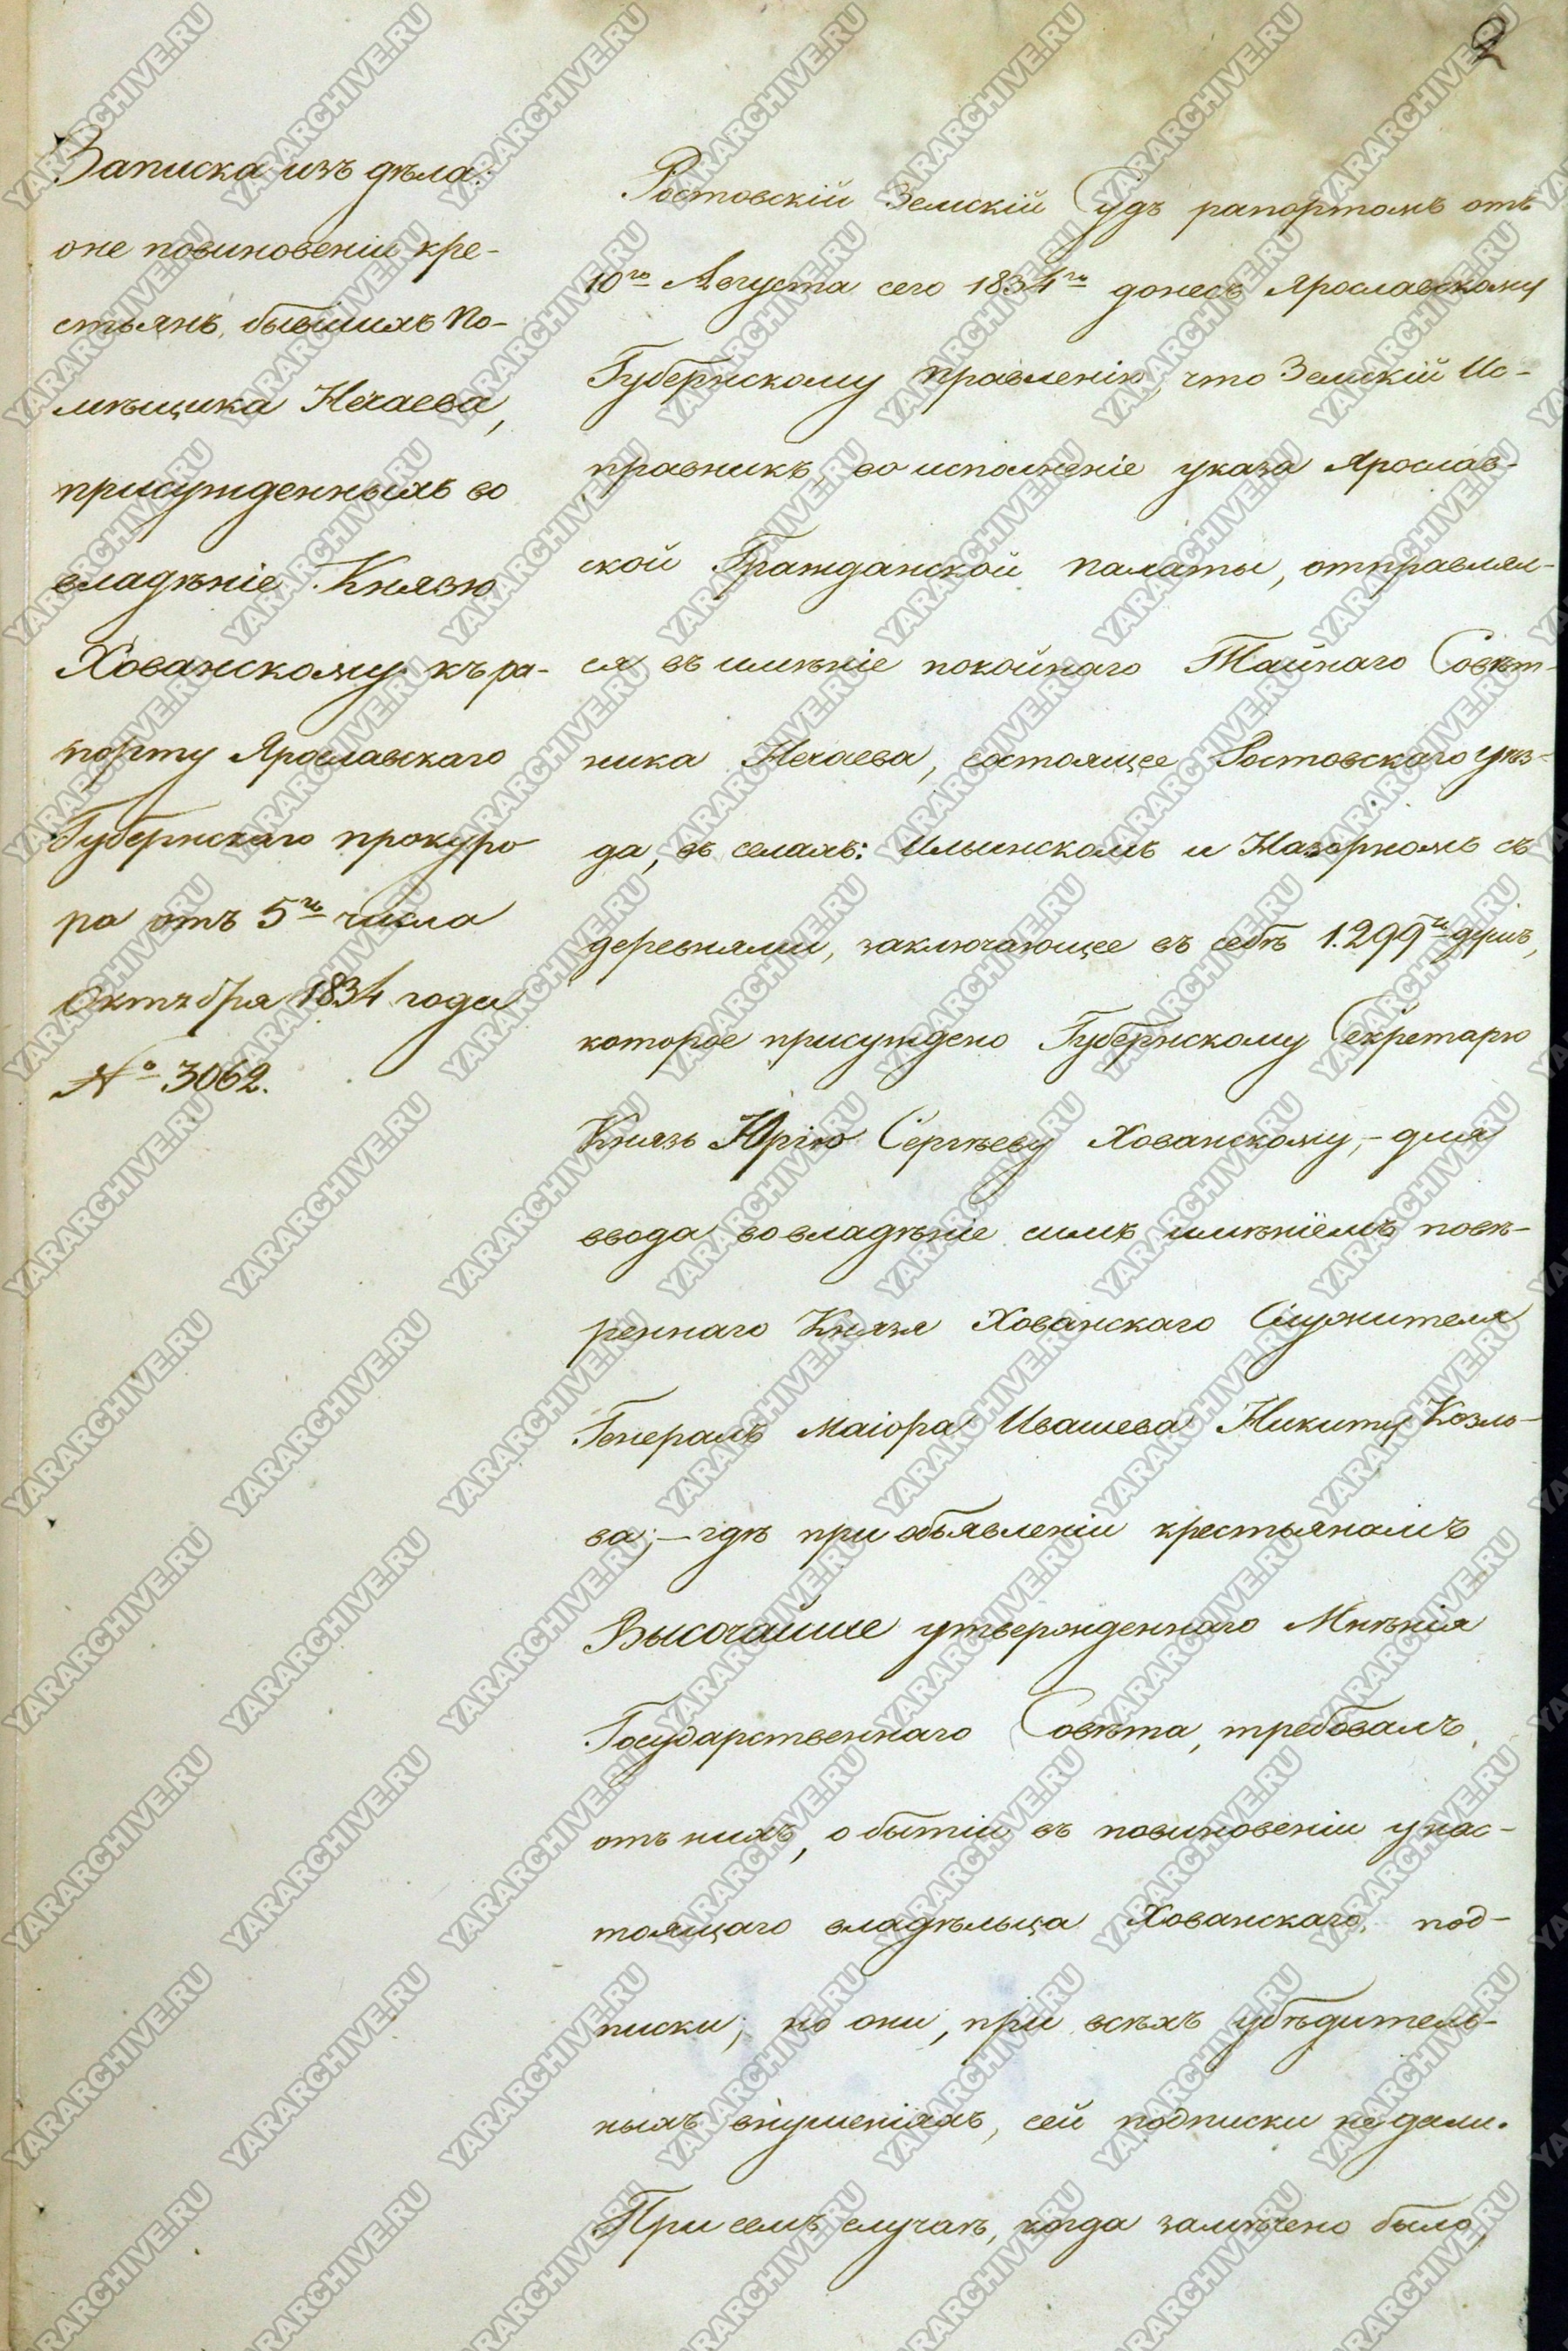 2
Записка изъ дѣла:
о не повиновеніи кре-
стьянъ, бывшихъ По-
мѣщика Нечаева,
присужденныхъ во
владѣніе Князю
Хованскому къ ра-
порту Ярославскаго
Губернскаго прокуро
ра отъ 5го числа
Октября 1834 года
№ 3062.
Ростовскій Земскій Судъ рапортомъ отъ
10го Августа сего 1834го донесъ Ярославскому
Губернскому правленію, что Земскій Ис-
правникъ, во исполненіе указа Ярослав-
ской Гражданской палаты, отправлял-
ся въ имѣніе покойнаго Тайнаго Совѣт-
ника Нечаева, состоящее Ростовскаго уѣз-
да, въ селахъ: Ильинскомъ и Назорномъ съ
деревнями, заключающее въ себѣ 1.299ть душъ,
которое присуждено Губернскому Секретарю
Князь Юрію Сергѣеву Хованскому, – для
ввода во владѣніе симъ имѣніемъ повѣ-
реннаго Князя Хованскаго Служителя
Генералъ Маіора Ивашева Никиту Козло-
ва; – гдѣ при объявленіи крестьянамъ
Высочайше утвержденнаго Мнѣнія
Государственнаго Совѣта, требовалъ
отъ нихъ, о бытіи въ повиновеніи у нас-
тоящаго владѣльца Хованскаго, под-
писки; но они, при всѣхъ убѣдитель-
ныхъ внушеніяхъ, сей подписки не дали.
При семъ случаѣ, когда замѣчено было,
YARARCHIVE.RU